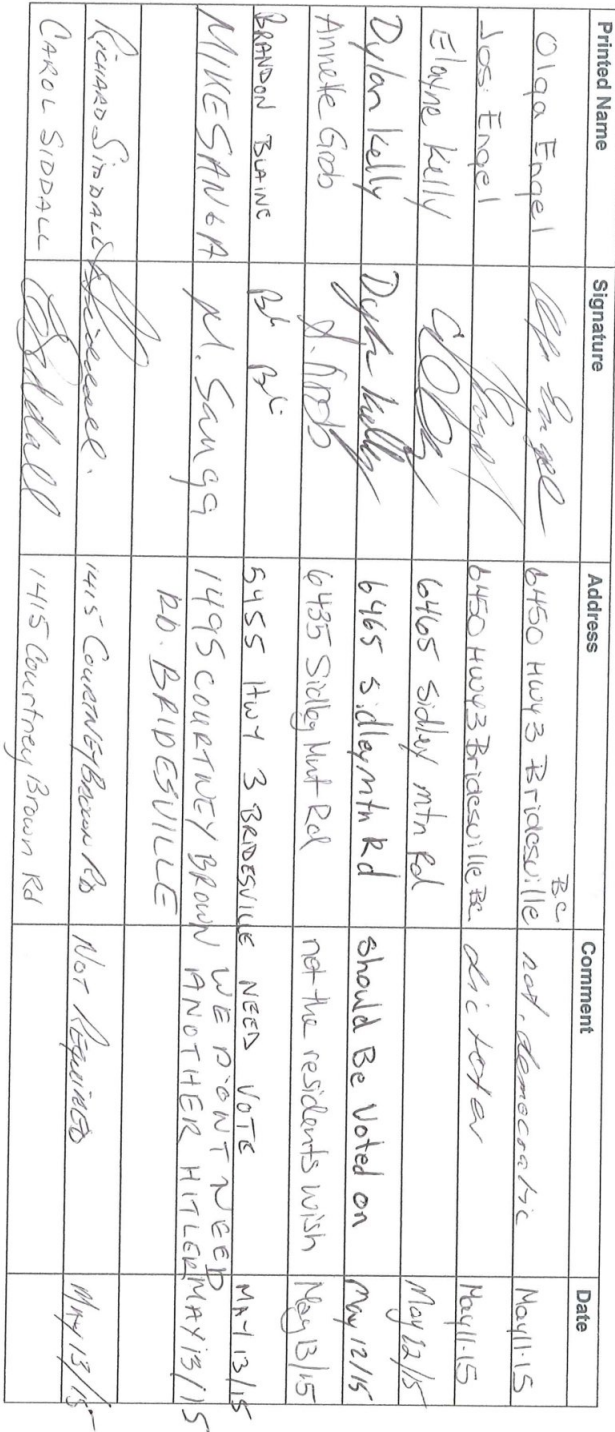 Printed Name Signature Address Comment Date
Olga Engel 6450 Hwy 3 Bridesville BC not democratic May 11-15
Jos. Engel 6450 Hwy 3 Bridesville BC. dictator May 11-15
Elayne Kelly 6465 Sidley mtn Rd May 12/15
Dylan Kelly Dylan Kelly 6465 sidley mtn Rd should Be voted on May 12/15
Annette Grob A. Grob 6435 Sidley Mnt Rd not the residents wish May 13/15
BRANDON BLAINE 5455 HWY 3 BRIDESVILLE NEED VOTE MAY 13/15
MIKE SANGA M. Sanga 1495 COURTNEY BROWN WE DONT NEED
RD. BRIDESVILLE ANOTHER HITLER MAY 13/15
RICHARD SIDDALL 1415 COURTNEY BROWN RD NOT REQUIRED MAY 13/15
CAROL SIDDALL CSiddall 1415 Courtney Brown Rd